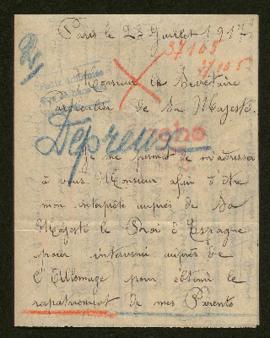 Paris le 23 Juillet 1917
37108
37105
Monsieur le Secrétaire
particulier de Sa Majesté.
Depreux
Je me permet de m'adresser
à vous Monsieur afin d'être
mon interprète auprès de Sa
Majesté le Roi d'Espagne
pour intervenir auprès de
l'Allemagne pour obtenir le
rapatriement de mes Parents